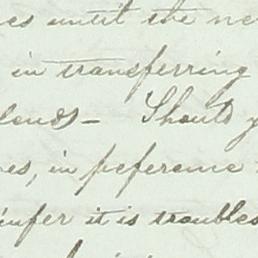 until the ne
in transferring
Should y
es, in preference
infer it is troubles